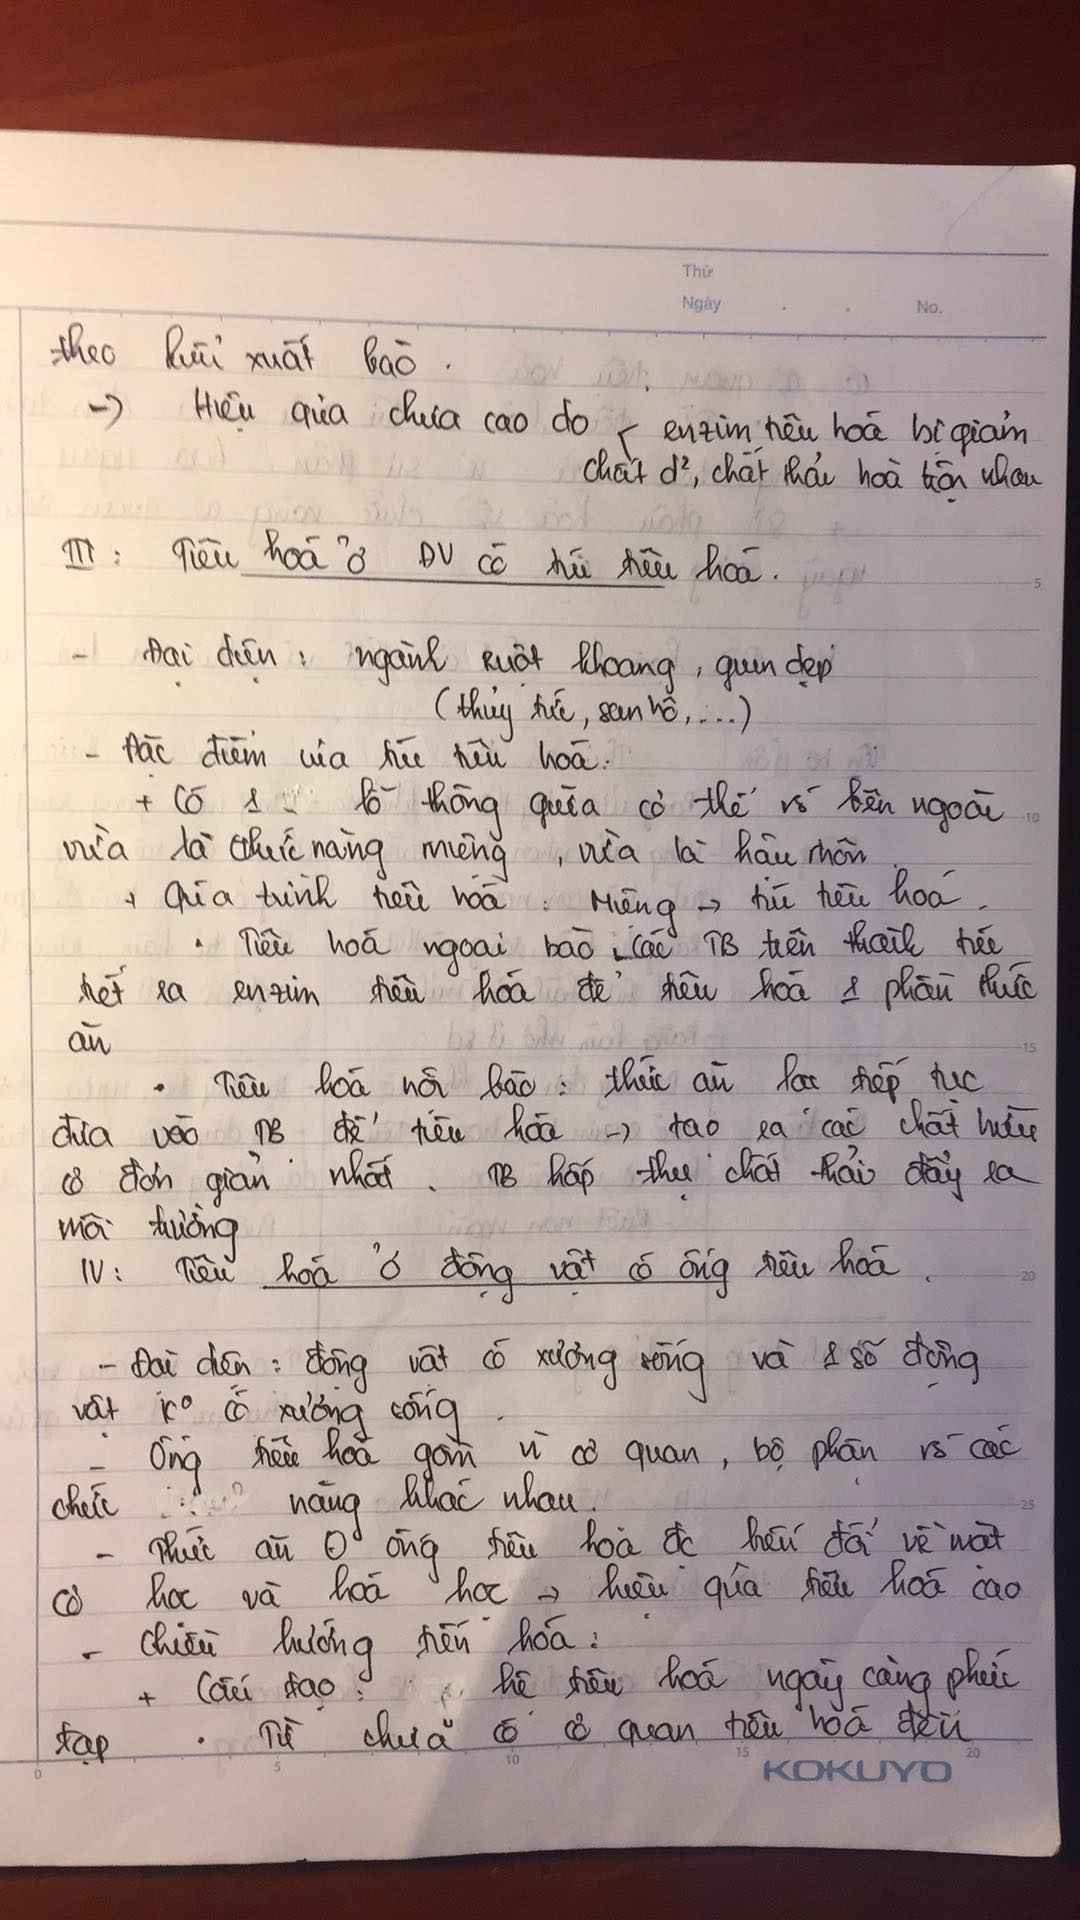 Thứ
Ngày . . No.
theo kiểu xuất bào.
-> Hiệu quả chưa cao do < enzim tiêu hoá bị giảm
chất d², chất thải hoà trộn nhau
III: Tiêu hoá ở ĐV có túi tiêu hoá.
5
- Đại diện: ngành ruột khoang, giun dẹp
(thủy tức, san hô,...)
- Đặc điểm của túi tiêu hoá:
+ Có 1 lỗ thông giữa cơ thể vs bên ngoài
10
vừa là chức năng miệng, vừa là hậu môn.
+ Quá trình tiêu hoá: Miệng -> túi tiêu hoá.
• Tiêu hoá ngoại bào: các TB trên thành túi
tiết ra enzim tiêu hoá để tiêu hoá 1 phần thức
ăn
15
• Tiêu hoá nội bào: thức ăn tiếp tục
đưa vào TB để tiêu hóa -> tạo ra các chất hữu
cơ đơn giản nhất. TB hấp thụ chất thải đẩy ra
môi trường
IV: Tiêu hoá ở động vật có ống tiêu hoá.
20
- Đại diện: động vật có xương sống và 1 số động
vật k° có xương sống.
- Ống tiêu hoá gồm n` cơ quan, bộ phận vs các
chức năng khác nhau.
25
- Thức ăn ở ống tiêu hoá đc biến đổi về mặt
cơ học và hoá học -> hiệu quả tiêu hoá cao
- Chiều hướng tiến hóa:
+ Cấu tạo: hệ tiêu hoá ngày càng phức
tạp • Từ chưa có cơ quan tiêu hoá đến
0 5 10 15 20
KOKUYO